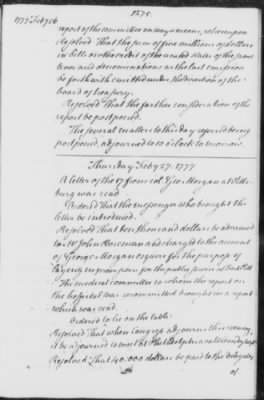 1777 Feby 26
report of the committee on ways & means, whereupon
Resolved That the sum of five millions of dollars
in bills on the credit of the united states of the same
tenor and denominations as the last emission
be forthwith emitted under the direction of the
board of treasury.
Resolved That the farther consideration of the
report be postponed.
The several matters to this day referred being
postponed, adjourned to 10 o'clock to morrow.
Thursday Feby 27. 1777
A letter of the 07 from col. Geo. Morgan at Pitts
burg was read
Ordered That the messenger who brought the
letter be introduced.
Resolved That ten thousand dollars be advanced
to Mr John and charged to the account
of George Morgan esquire for the purpose of
laying in provisions for the public service at Fort Pitt.
The medical committee to whom the report on
the hospital was recommitted brought in a report
which was read.
Ordered to lie on the table.
Resolved That when Congress adjourns this evening,
it be adjourned to meet at Philadelphia on wednesday next
Resolved That 40.000 dollars be paid to the delegates
of